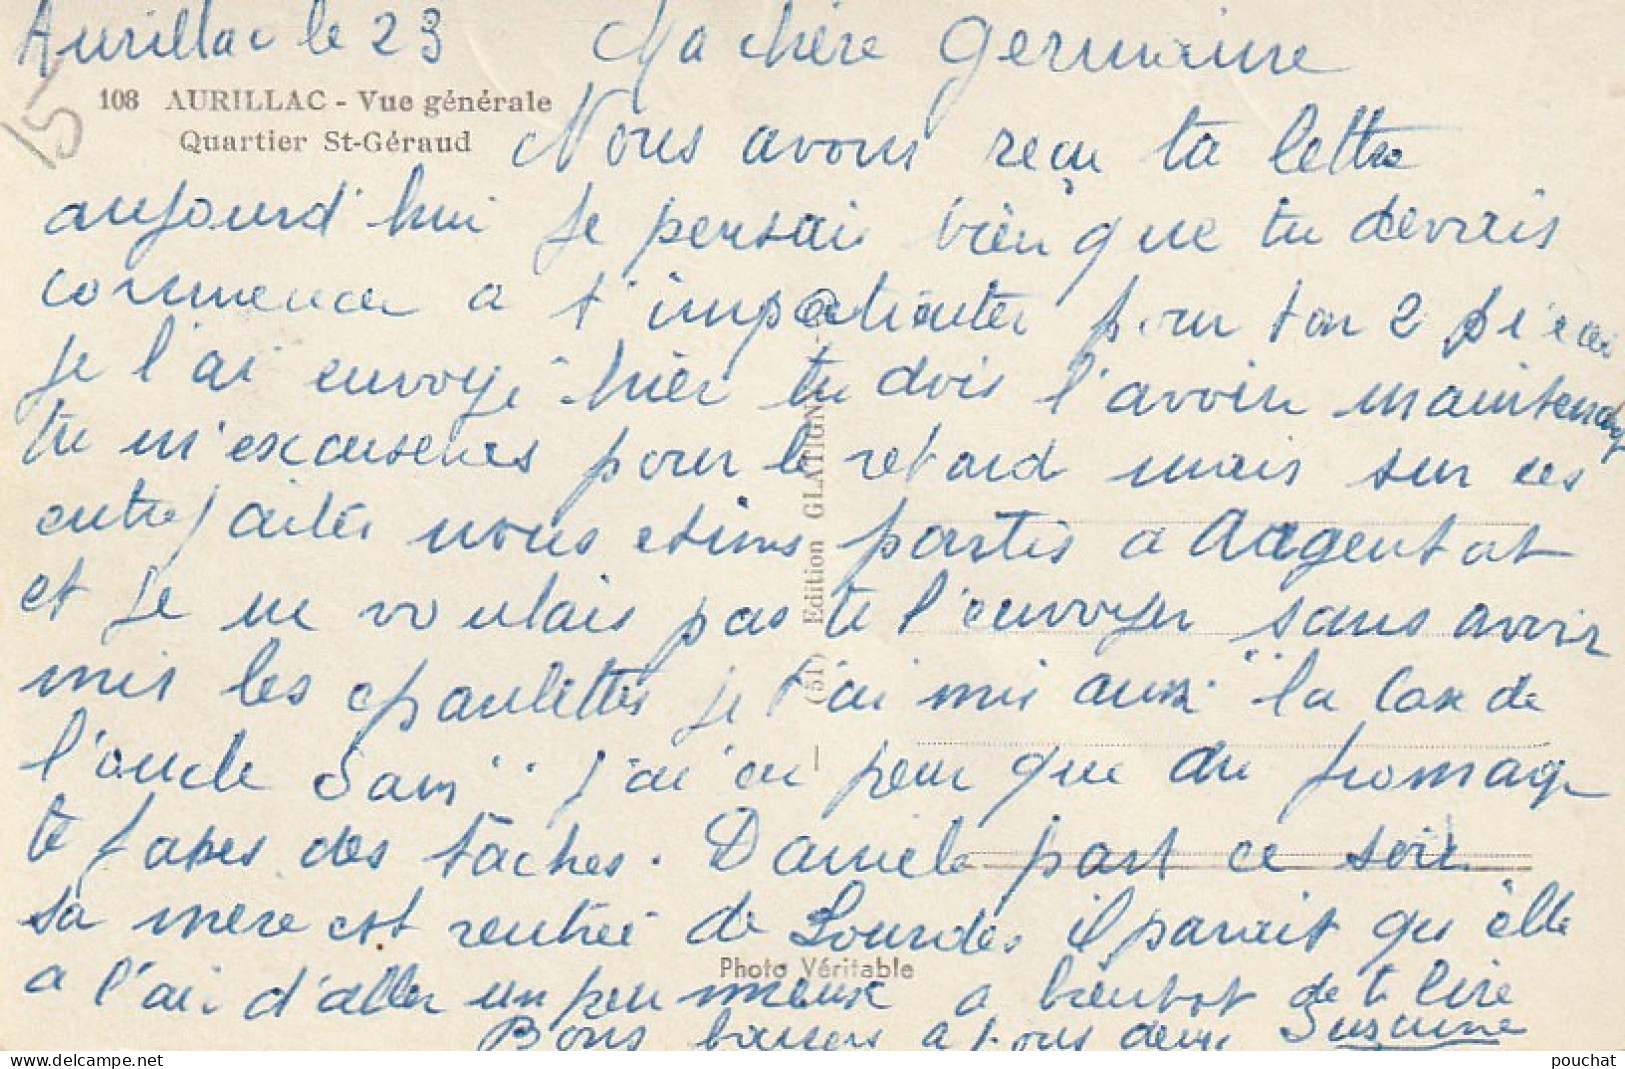 Aurillac le 23 Ma chère Germaine
15
108 AURILLAC - Vue générale
Quartier St-Géraud
Nous avons reçu ta lettre
aujourd'hui je pensai bien que tu devrais
commencer a t'impatienter pour ton 2 pièces
je l'ai envoyé hier tu dois l'avoir maintenant
tu m'excuseras pour le retard mais sur ces
entrefaites nous etions partis a Argentat
et je ne voulais pas te l'envoyer sans avoir
mis les epaulettes je t'ai mis aussi "la Cax de
l'oncle Sam" j'ai eu peur que du fromage
te fasses des tâches. Daniele part ce soir
sa mere est rentrée de Lourdes il parait qu'elle
a l'air d'aller un peu mieux a bientot de te lire
Bons baisers a tous deux Suzanne
(51) Edition GLATIGNY
Photo Véritable
pouchat